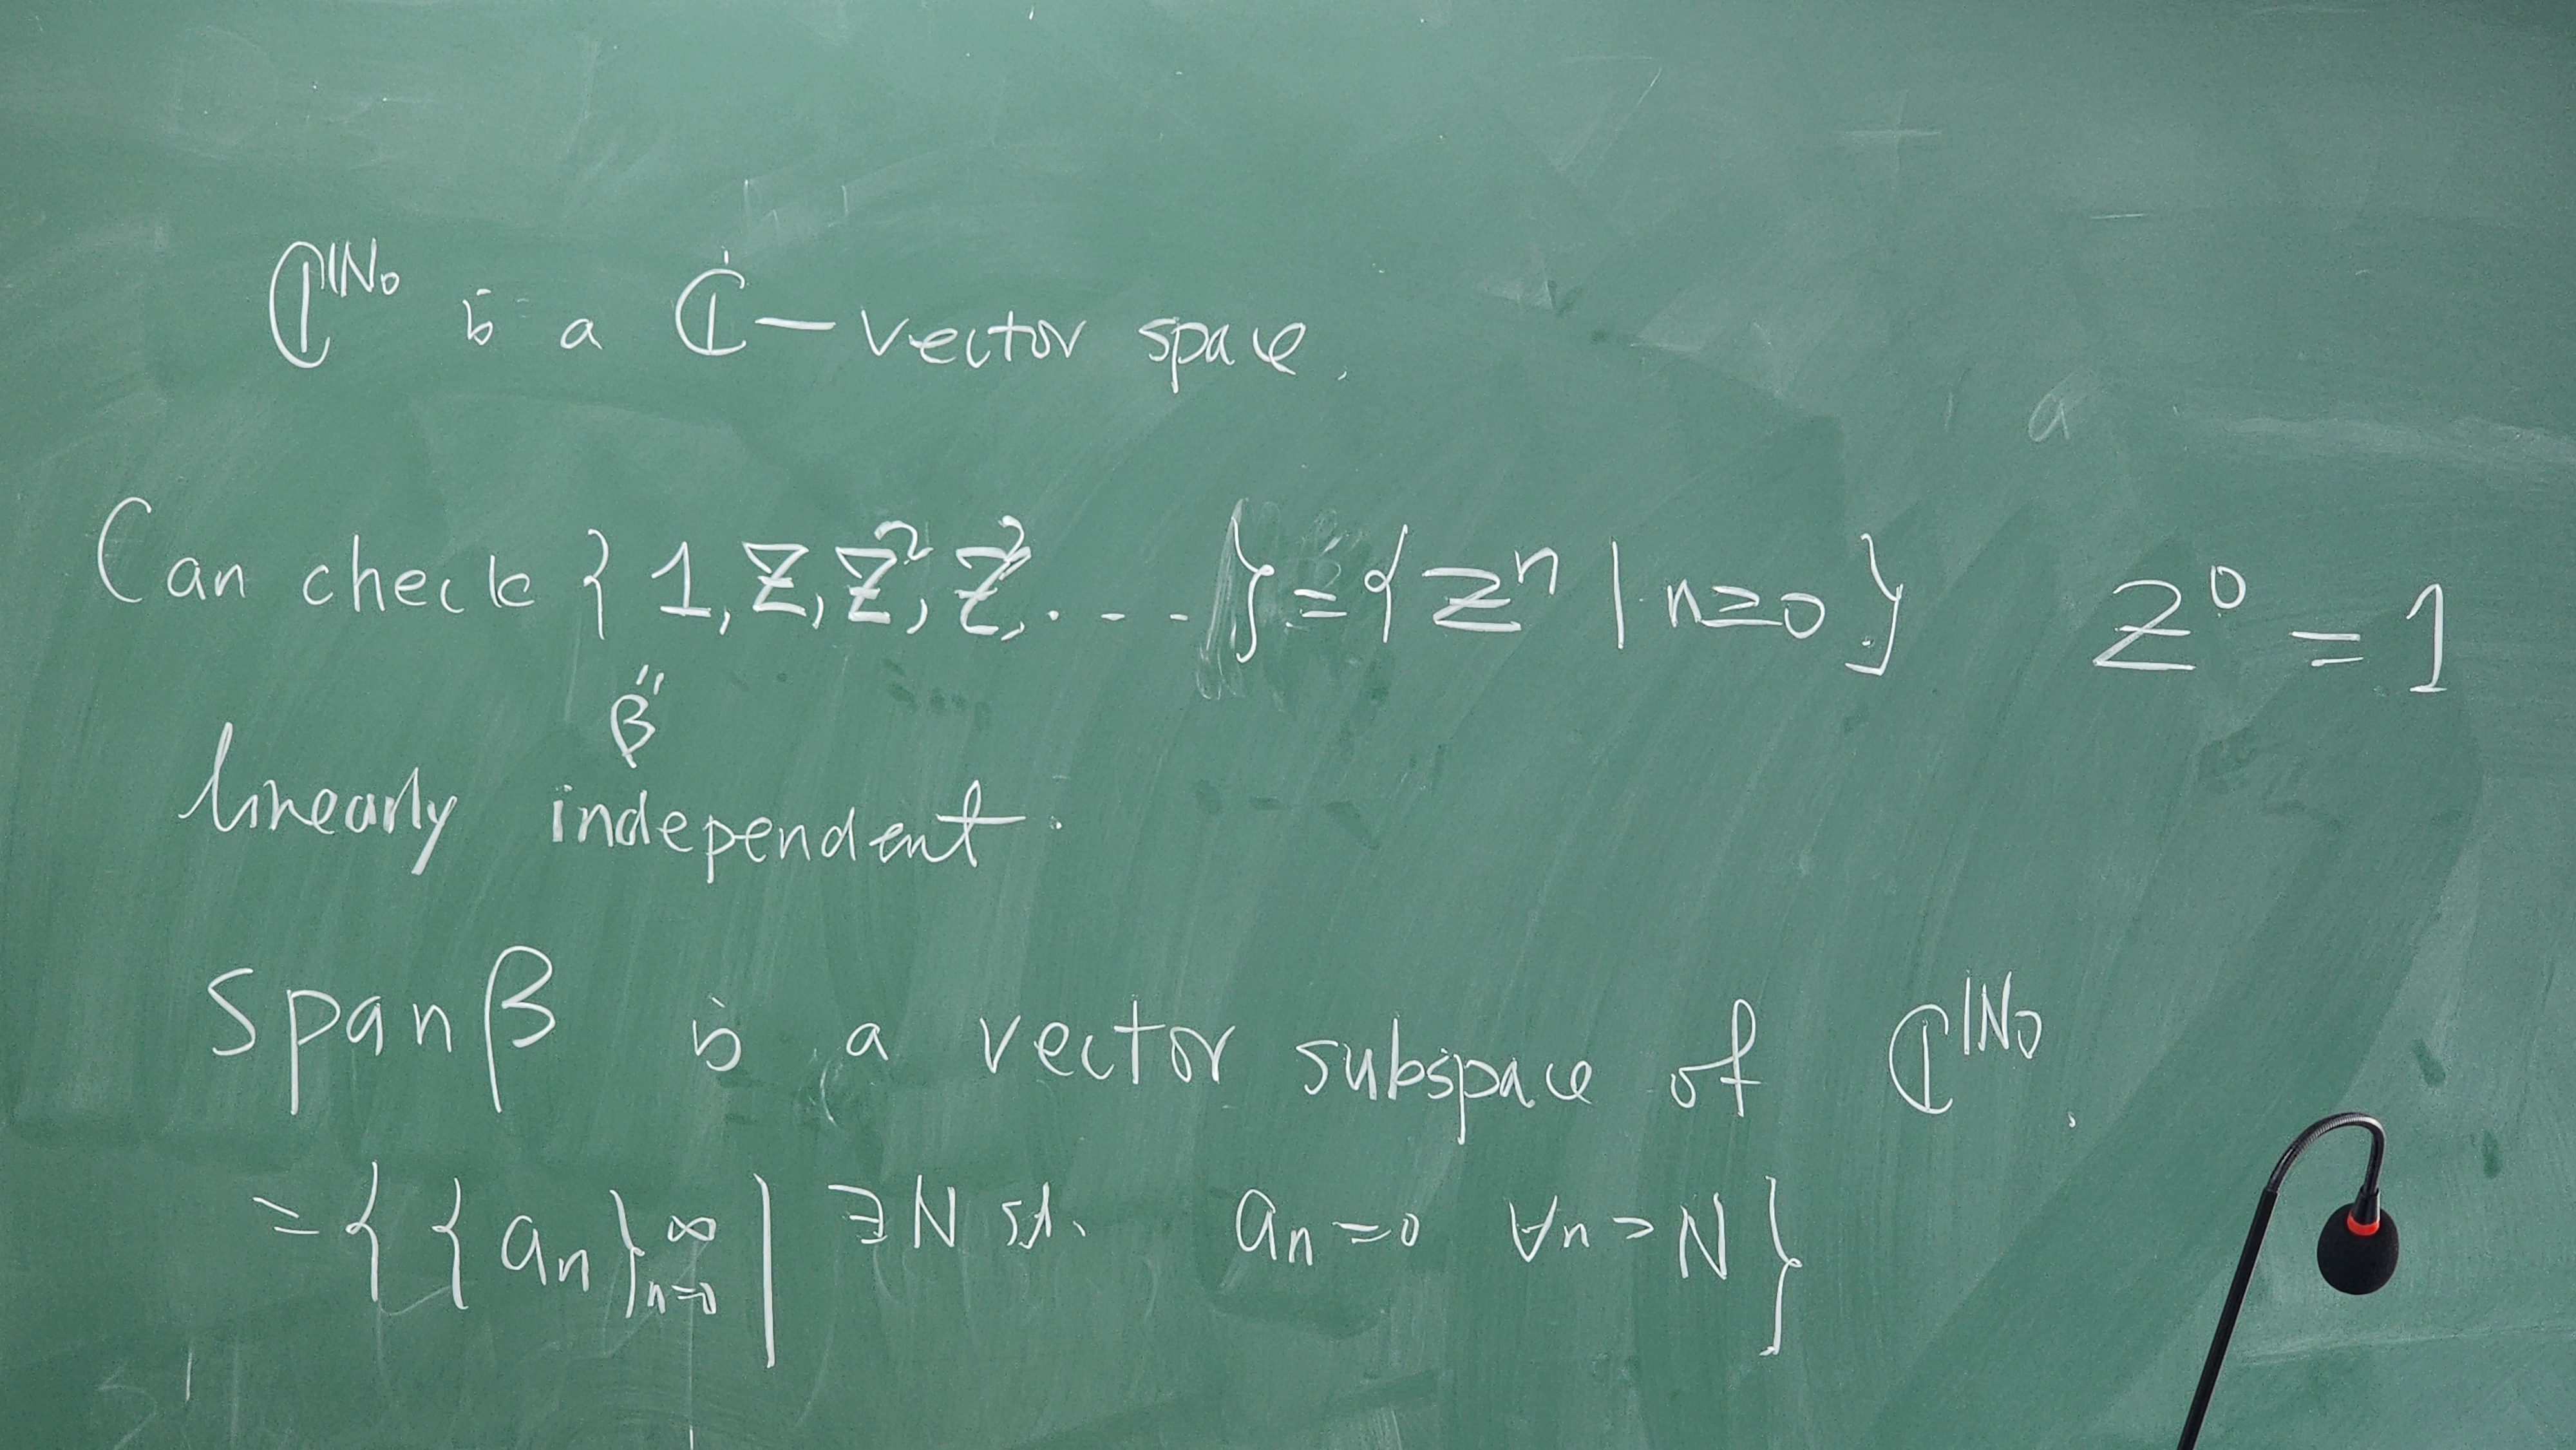 ℂ^ℕ₀ is a ℂ–vector space.
Can check {1, z, z², z³, . - - - } = {zⁿ | n≥0} z⁰ = 1
"
β
linearly independent.
span β is a vector subspace of ℂ^ℕ₀.
= { {aₙ}ₙ₌₀^∞ | ∃N s.t. aₙ=0 ∀n>N }